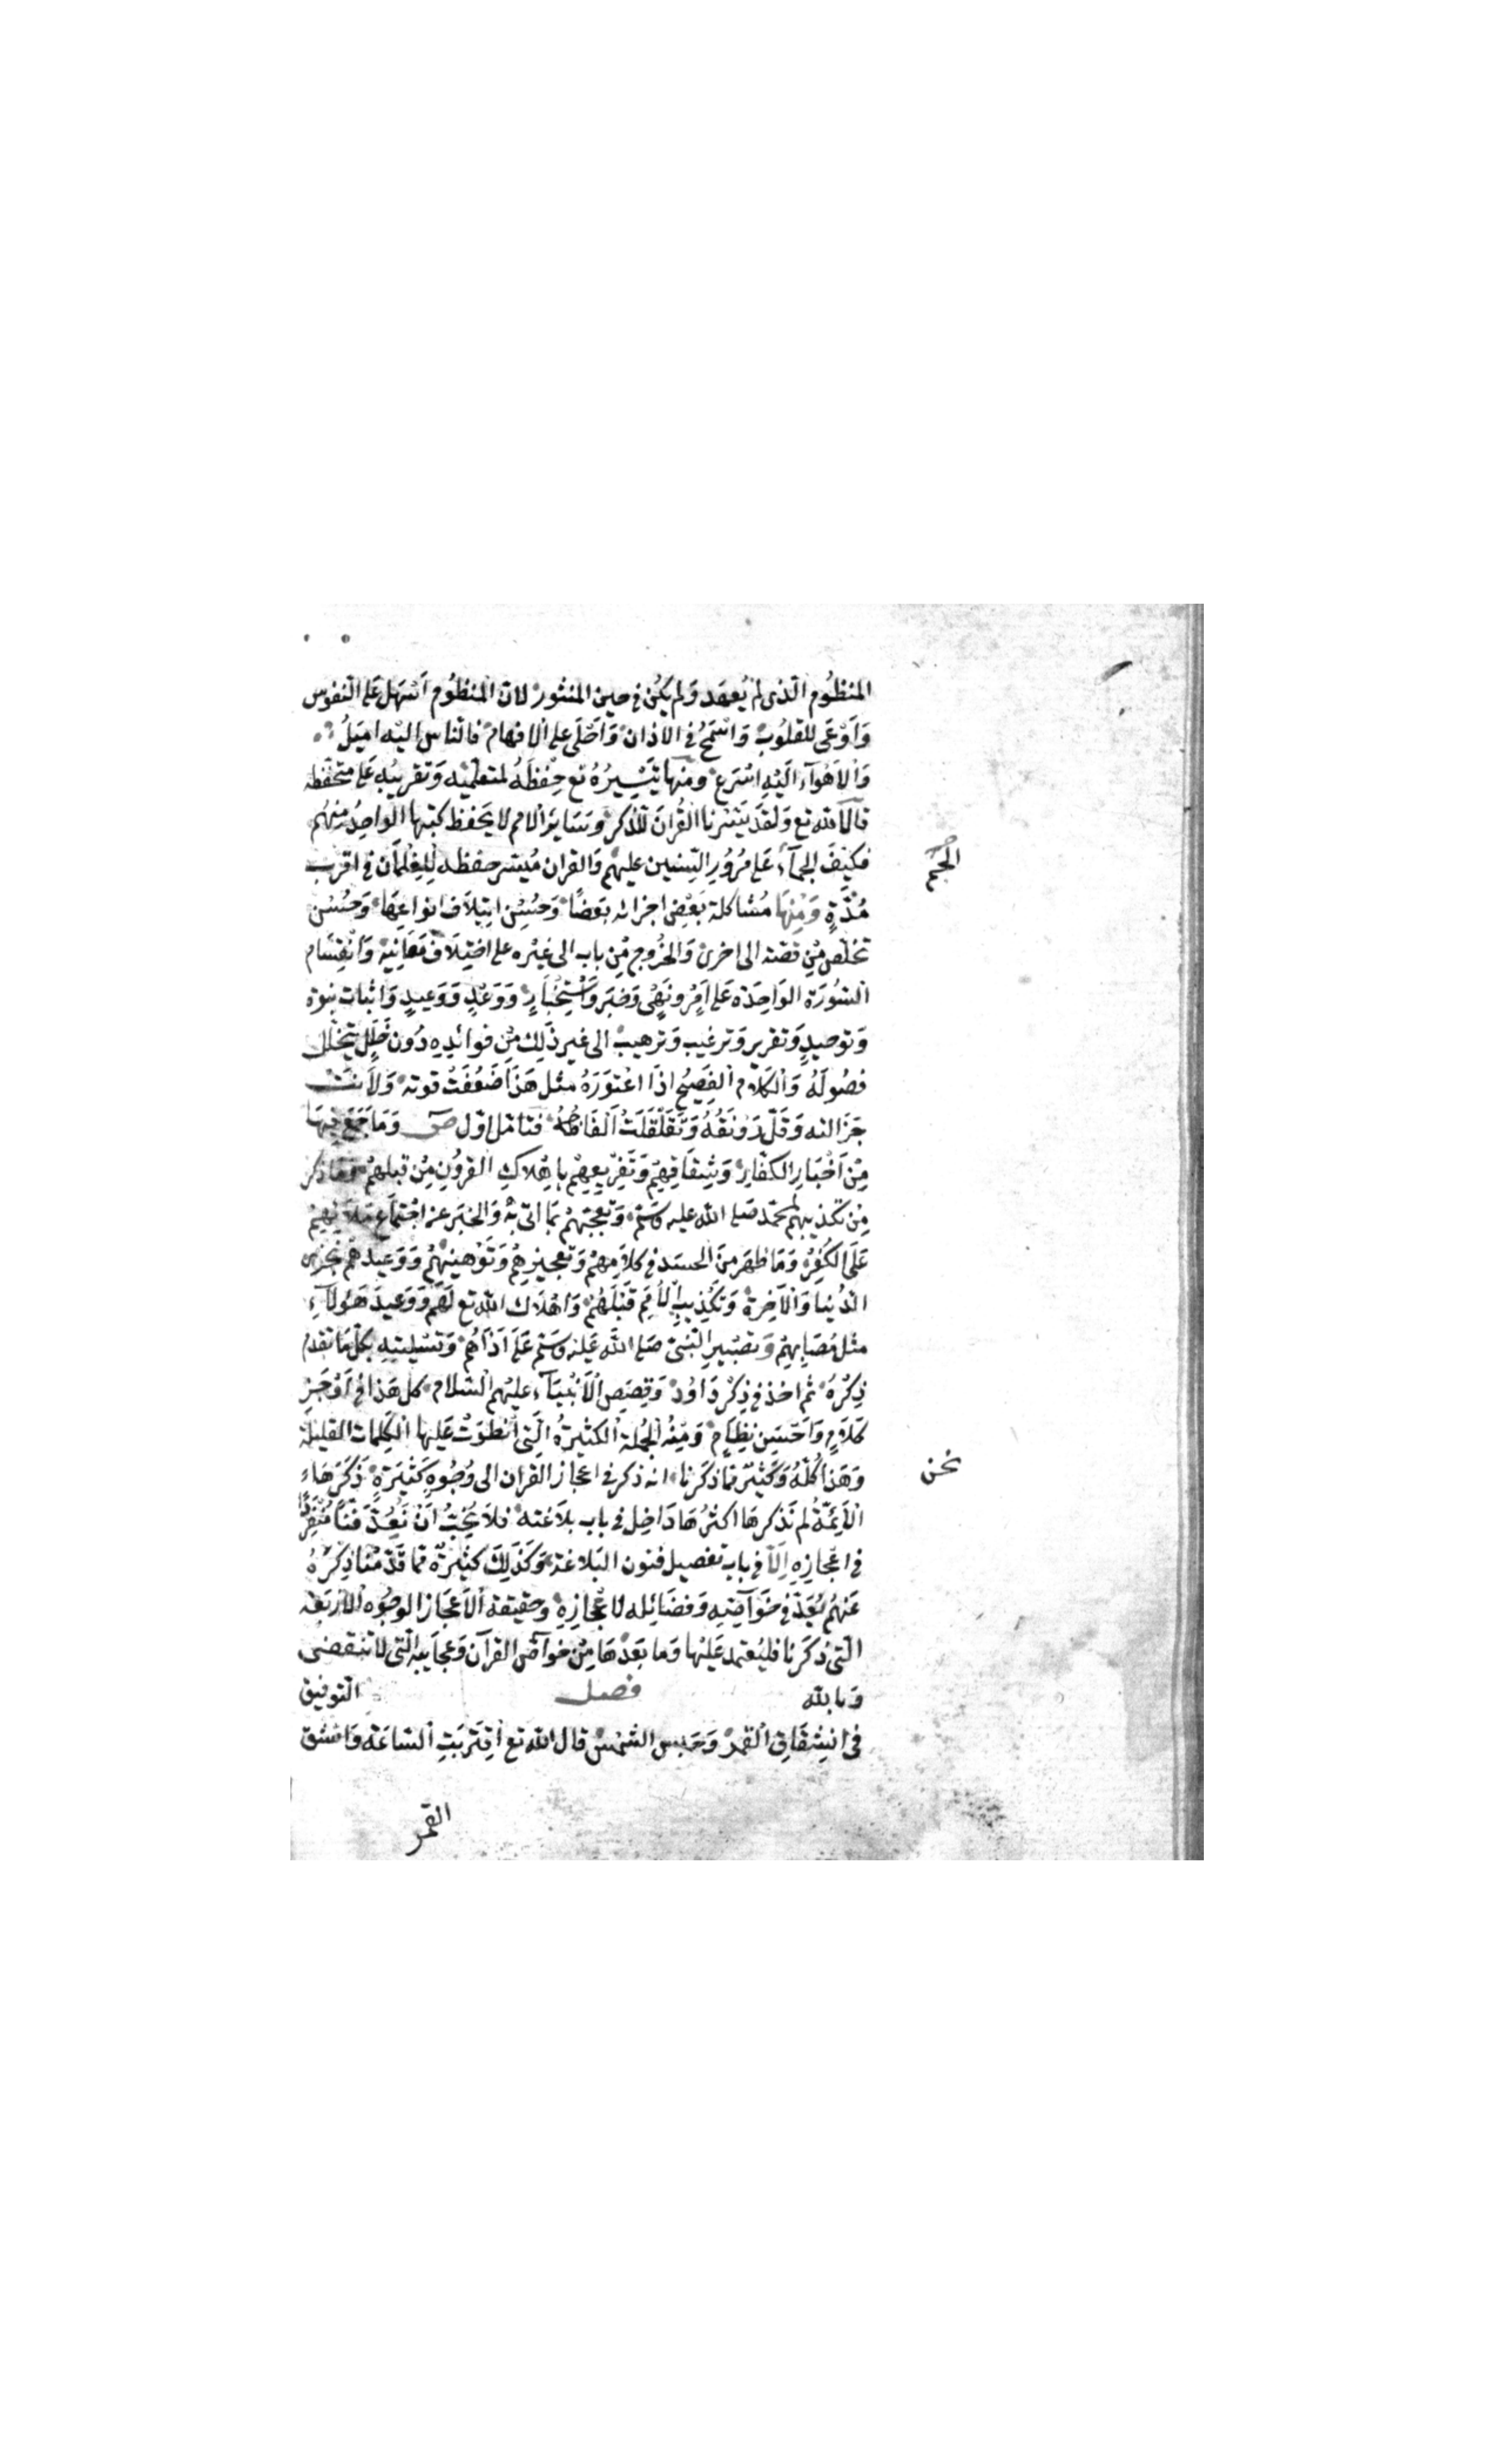 المنظُوم الّذى لمْ يُعهَد وَلم يَكُن فى حيز المنثور لانّ المنظُوم اَسْهَل عَلى النّفوس
وَاَوْعَى للقلوُب وَاسْمَحُ فى الاذان وَاَحْلَى على الافهام فالنّاس اليْه اميَلُ
وَالاَهْوآء الَيْهِ اسْرَع ومنهَا تَيْسِيرُهُ تع حِفْظَهُ لمتعلّميْه وَتقريبُه عَلى متحفّظه
قال الله تع وَلقد يَسّرنا القُرانَ للذّكر وسَاير الامم لا يَحفظ كتبها الوَاحِدُ منهُم
فكيْفَ الجمآء عَلى مرُوُرِ السّنين عليهُم وَالقران مُيسّر حفظه لِلغِلمَان فى اقرب
مُدّةٍ وَمِنهَا مُشاكلة بَعْضِ اجزائه بَعضًا وَحُسْن ايتلاَف انواعِهَا وَحُسْن
تخلّص مِن قصّة الى اخرى وَالخُروج مِن باب الى غيْره على اختِلاَف مَعَانِيه وَانْقِسَام
السُّورَة الوَاحِدَة عَلى اَمْرٍ ونَهْىٍ وَخبَرٍ وَاسْتِخْبَارٍ وَوَعْدٍ وَوَعيدٍ وَاثبات نبوة
وَتوحيدٍ وَتقرير وَترغيب وَترْهيب الى غير ذَلِك مِن فوائدِه دُون خَلَلٍ يَتخلّل
فصُولَهُ وَالكَلاَم الفَصِيْح اذَا اعْتوَرَهُ مثل هَذا ضَعُفَتْ قوته وَلاَنَتْ
جَزالته وَقَلّ رَونَقُهُ وَتَقلْقَلَتْ اَلفَاظُهُ فتامّل اوّل ص وَمَا جَمَعَ فيهَا
مِنْ اَخْبَارِ الكفّار وَشِقَاقِهِمْ وَتَقْرِيعِهِمْ باِهْلاَكِ القروُنِ مِنْ قبلهمْ وَمَا ذكر
مِن تكذيبهم لمحمّد صَلى الله عليه وسَلم وَتعجّبهُم ممّا اتى بِهْ وَالخبَر عن اجْتماَع مَلائِهِمْ
عَلَى الكُفِرْ وَمَا ظهَر مِنَ الحسَد فى كلاَمِهمْ وَتعجيزهِمْ وَتَوْهينهِمْ وَوَعيدهمْ بخزى
الدّنيا وَالآخِرة وَتكْذيبِ الاُمَم قَبْلَهُمْ وَاهْلاَك الله تع لَهُمْ وَوَعيدَ هَؤلآءِ
مثل مُصَابِهِمْ وَتصْبيرِ النّبىّ صَلى الله عَليه وسَلم عَلى اَذَاهُمْ وَتسْليَتِهِ بكل مَا تقدّم
ذِكْرُهُ ثم اخذ فى ذِكْرِ دَاوُدَ وَقِصَصِ الاَنبْيَآء عليهُم السّلام كل هَذا فى اَوْجَز
كلاَمٍ وَاَحْسَنِ نِظامٍ وَمِنْه الجُمْلة الكثيْرةُ الّتى انْطَوَتْ عَليها الكِلمات القليلة
وَهَذا كُلّهُ وَكَثيْرٌ ممّا ذكَرْنا انه ذكر فى اعجاز القران الى وُجُوهٍ كَثيْرَة ذَكَرَهَا
الاَئِمّةُ لم نَذكرهَا اكثرُهَا دَاخِل فى باب بلاَغته فلاَ يُحِبّ اَنْ نَعُدّ فَنًّا مُنْفَرِدًا
فى اعْجَازِهِ اِلاّ فى باب تفصيل فنون البَلاغة وَكَذلِكَ كثيرٌ ممّا قدّمْنا ذِكْرَهُ
عَنهُم يُعَدّ فى خَوَآصّه وَفضَائِله لا اعْجازِهِ وَحقيقة الاَعجَاز الوجُوه الاَربَعَة
الّتى ذكَرْنا فليُعتمد عَليْها وَما بَعْدهَا مِنْ خوآص القرآن وَعجايبه الّتى لا تنقضى
وَبالله فصل التّوفيق
فى انشِقَاق القمَر وَحَبس الشمْس قال الله تع اقتَرَبَتِ السّاعَة وَانشق
القمر
الجمّ
نحن